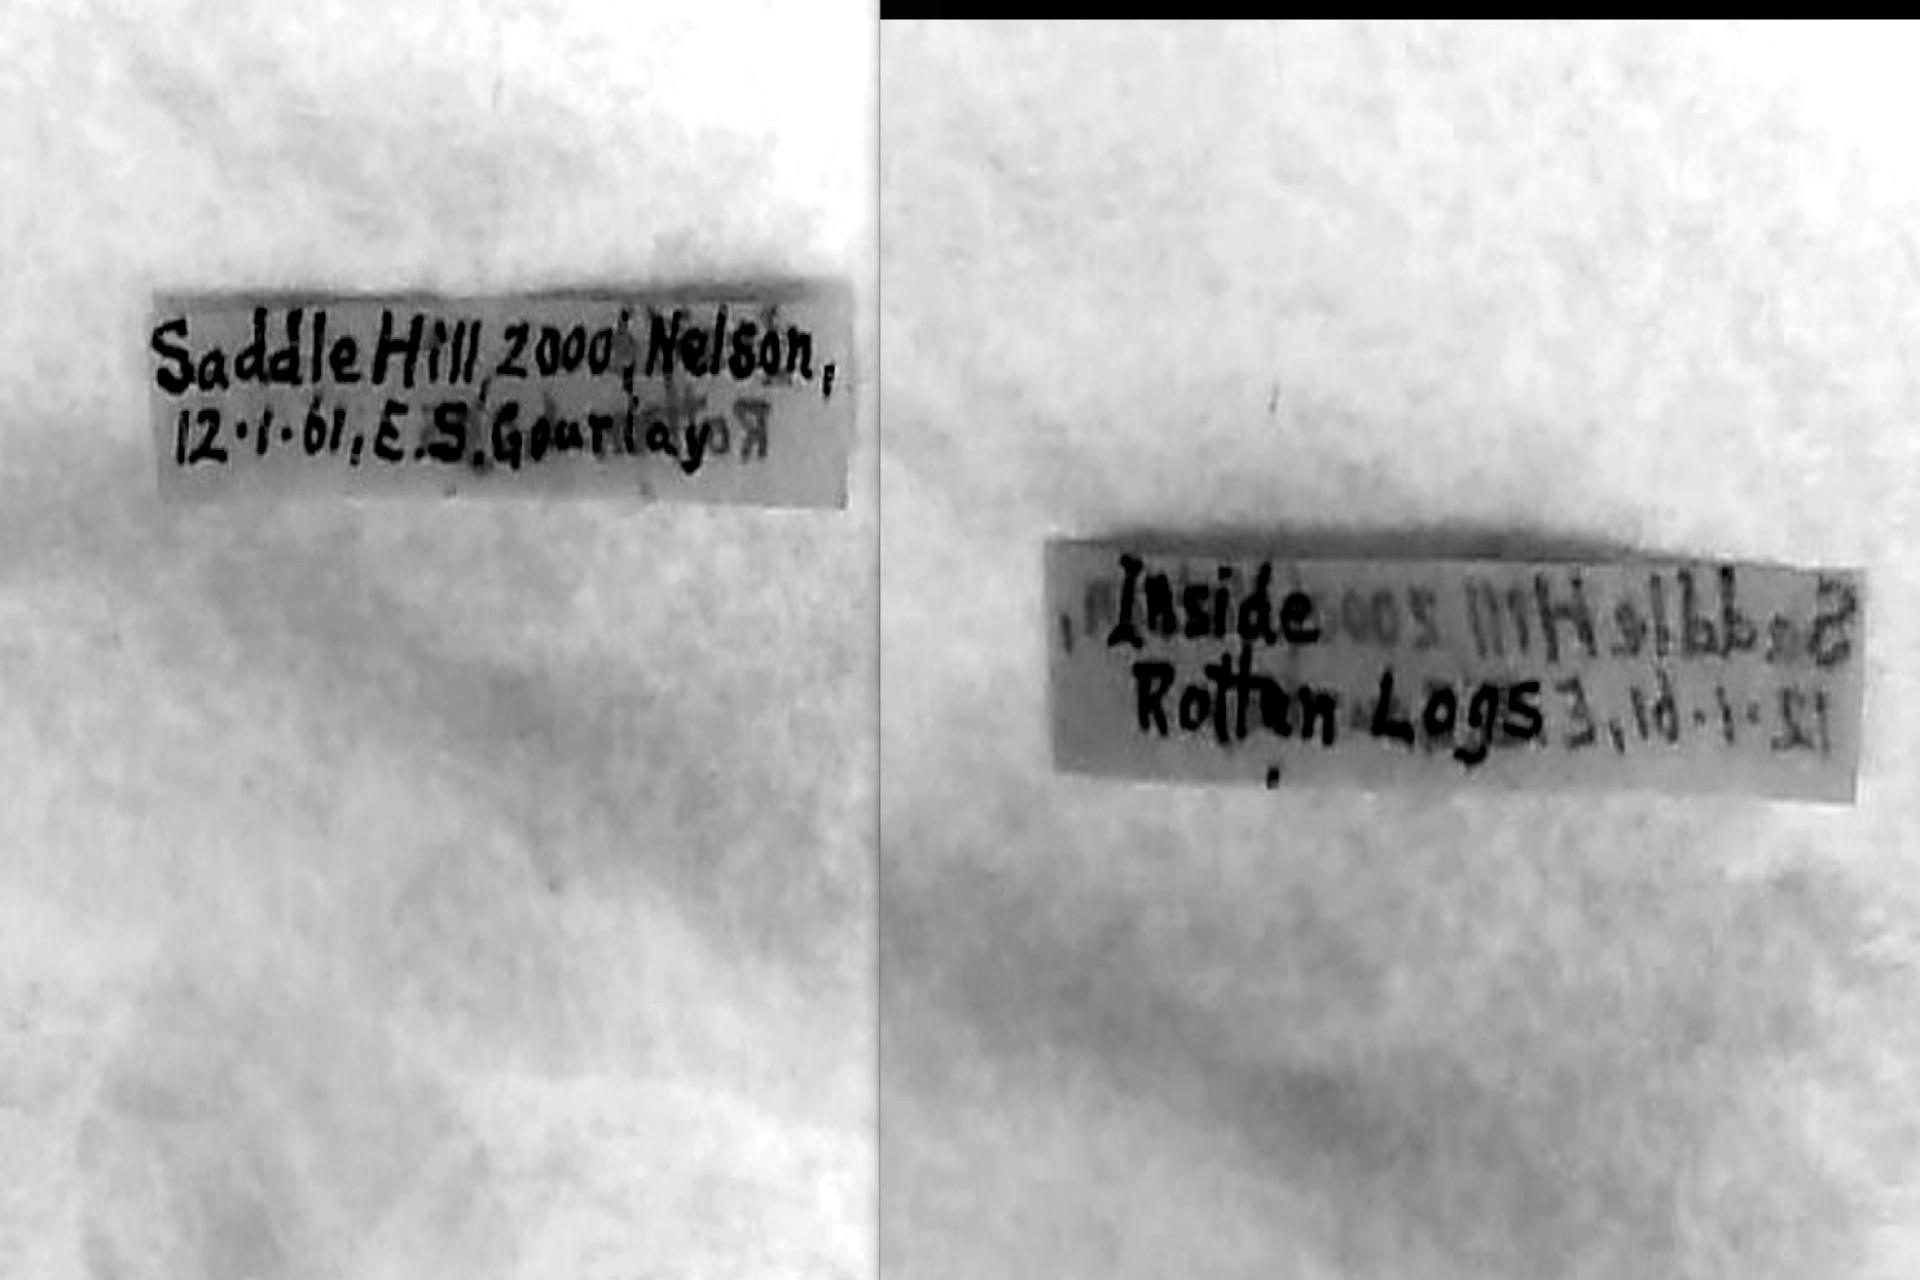 Saddle Hill, 2000', Nelson,
12·1·61, E.S. Gourlay
Inside
Rotten Logs